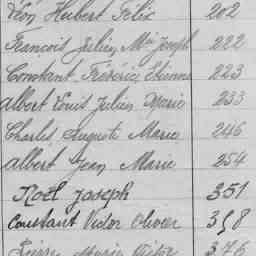 Léon Herbert Félix 202
François Julien Mie Joseph 222
Constant Frédéric Etienne 223
Albert Louis Julien Marie 233
Charles Auguste Marie 246
Albert Jean Marie 254
Noël Joseph 351
Constant Victor Olivier 358
Pierre Marie Victor 376